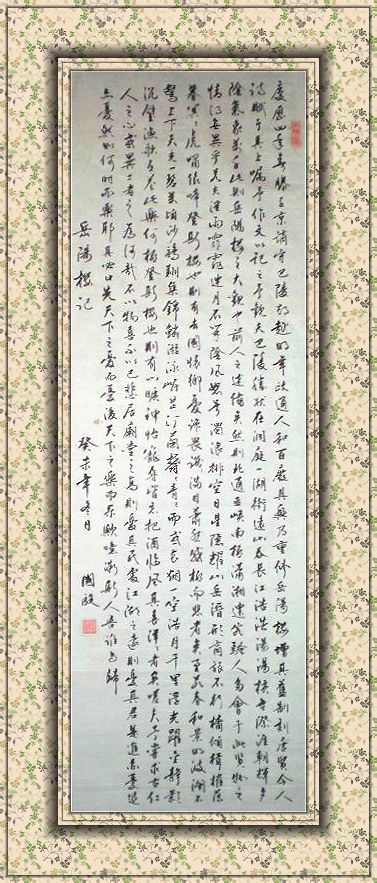 慶歷四年春滕子京謫守巴陵郡越明年政通人和百廢具興乃重修岳陽樓增其舊制刻唐賢今人
詩賦于其上囑予作文以記之予觀夫巴陵勝狀在洞庭一湖銜遠山吞長江浩浩湯湯橫無際涯朝暉夕
陰氣象萬千此則岳陽樓之大觀也前人之述備矣然則北通巫峽南極瀟湘遷客騷人多會于此覽物之
情得無異乎若夫淫雨霏霏連月不開陰風怒號濁浪排空日星隱耀山岳潛形商旅不行檣傾楫摧薄
暮冥冥虎嘯猿啼登斯樓也則有去國懷鄉憂讒畏譏滿目蕭然感極而悲者矣至若春和景明波瀾不
驚上下天光一碧萬頃沙鷗翔集錦鱗游泳岸芷汀蘭郁郁青青而或長煙一空皓月千里浮光躍金靜影
沉璧漁歌互答此樂何極登斯樓也則有心曠神怡寵辱皆忘把酒臨風其喜洋洋者矣嗟夫予嘗求古仁
人之心或異二者之為何哉不以物喜不以己悲居廟堂之高則憂其民處江湖之遠則憂其君是進亦憂退
亦憂然則何時而樂耶其必曰先天下之憂而憂後天下之樂而樂歟噫微斯人吾誰與歸
岳陽樓記
癸未年冬月